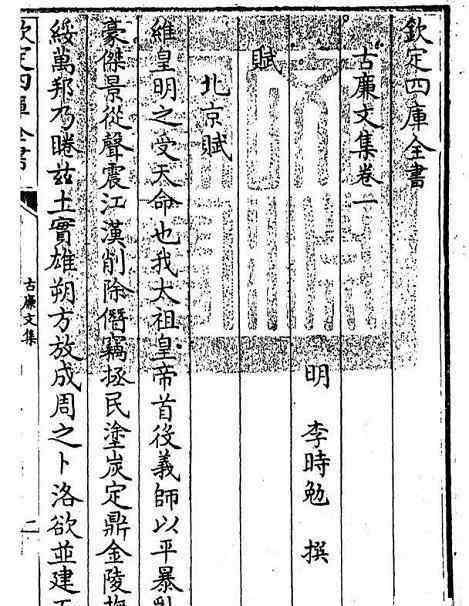 欽定四庫全書
古廉文集卷一
明 李時勉 撰
賦
北京賦
維皇明之受天命也我太祖皇帝首役義師以平暴亂
豪傑景從聲震江漢削除僭竊拯民塗炭定鼎金陵撫
綏萬邦乃睠茲土實雄朔方放成周之卜洛欲並建
欽定四庫全書
古廉文集
二